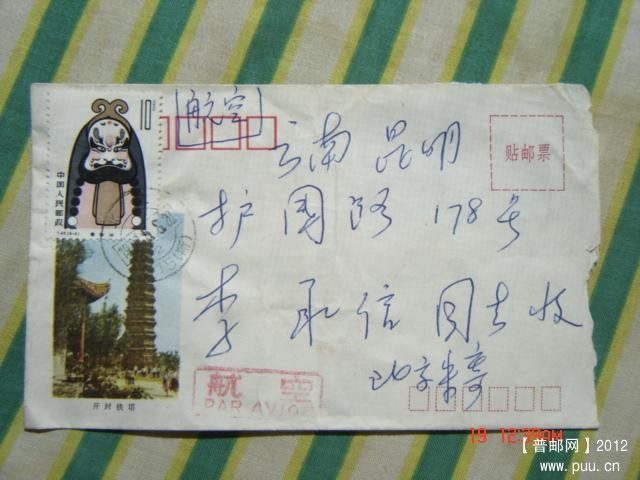 10分
[航空]
中国人民邮政
贴邮票
云南昆明
护国路178号
李承信同志收
北京朱寄
航空
PAR AVION
开封铁塔
19 12:
【普邮网】2012
www.puu.cn